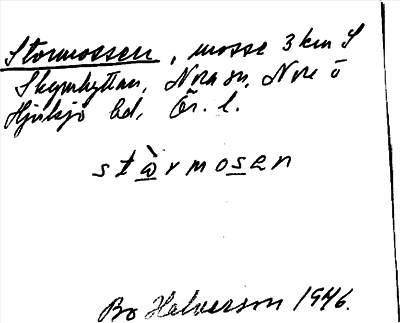 Stormossen, mosse 3 km S
Skymhyttan, Nora sn, Nora o
Hjulsjö bd, Ör. l.
stàrmosen
Bo Halvarson 1946.